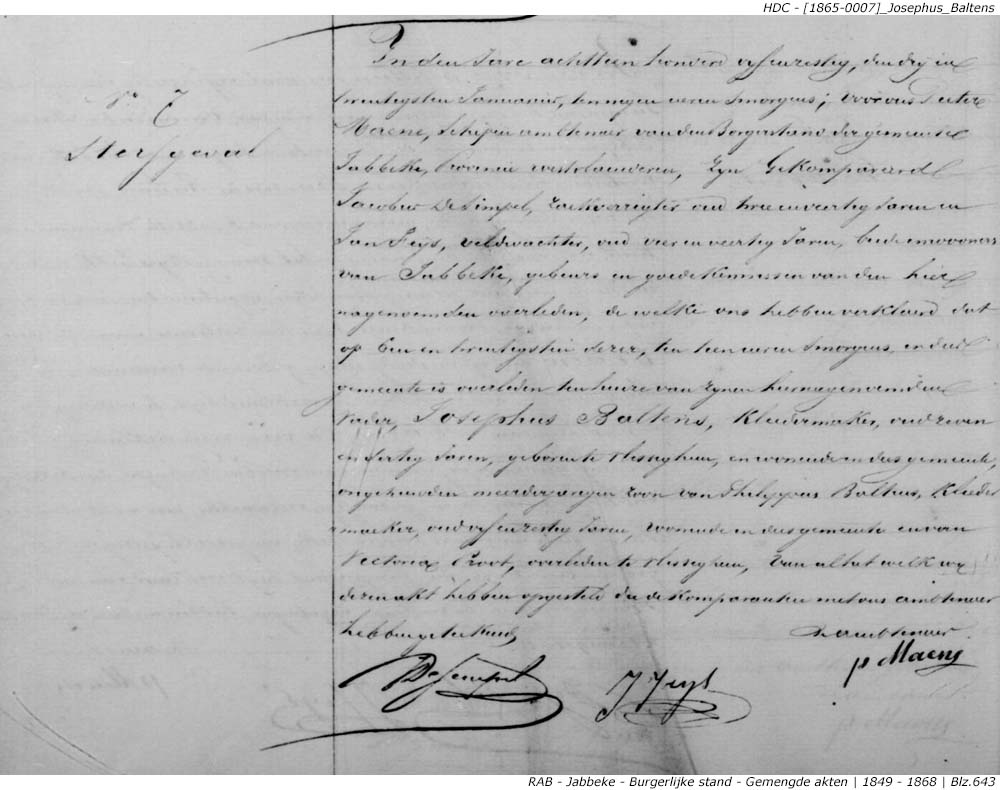 HDC - [1865-0007]_Josephus_Baltens
N° 7
Sterfgeval
In den Jare achttien honderd vyfenzestig, den dry en
twintigsten Januarius, ten negen uren s'morgens; voor ons Pieter
Maene, Schepen ambtenaer van den Borgerstand der gemeente
Jabbeke, Provincie westvlaanderen, zyn Gekompareerd
Jacobus DeSimpel, zaekverrigter oud twee en veertig Jaren en
Jan Feys, veldwachter, oud vier en veertig Jaren, beide inwooners
van Jabbeke, gebeurs en goede kennissen van den hier
nagenoemden overleden, de welke ons hebben verklaerd dat
op Een en twintigsten dezer, ten tien uren s'morgens, in dese
gemeente is overleden ten huize van zynen hiernagenoemden
Vader, Josephus Baltens, Kleedermaker, oud zeven
en dertig Jaren, geboren te Vlisseghem, en wonende in dese gemeente,
ongehuwden meerderjarigen zoon van Philippus Baltens, Kleeder
maeker, oud vyfenzestig Jaren, wonende in dese gemeente en van
Victoria Proot, overleden te Vlisseghem, Van al het welk wy
dezen akt hebben opgesteld die de Komparanten met ons ambtenaer
hebben geteekend,
De ambtenaer
DeSimpel
J Feys
p Maene
RAB - Jabbeke - Burgerlijke stand - Gemengde akten | 1849 - 1868 | Blz.643